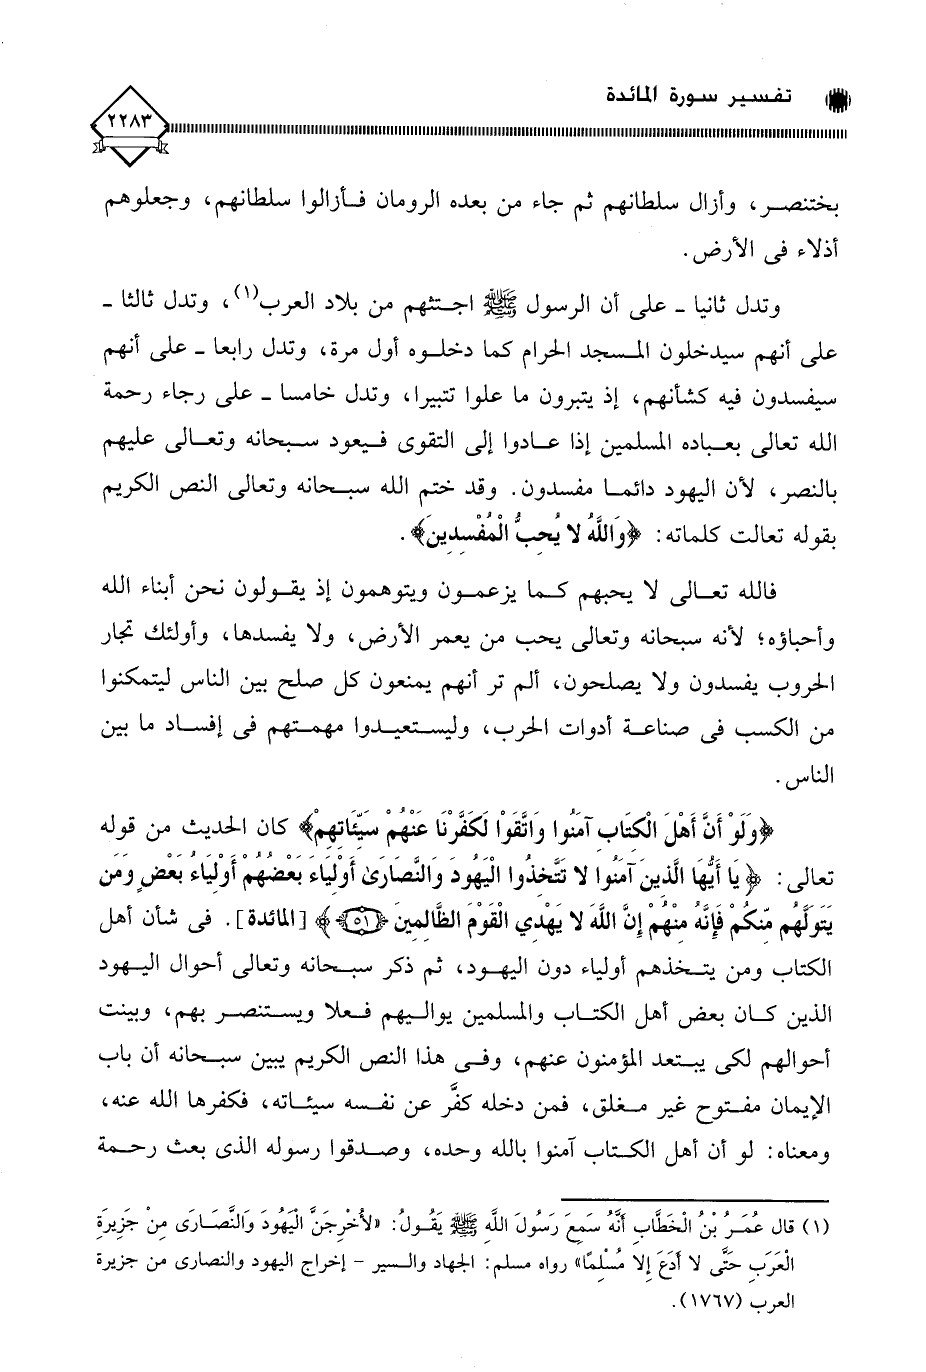 تفسير سورة المائدة
٢٢٨٣
بختنصر، وأزال سلطانهم ثم جاء من بعده الرومان فأزالوا سلطانهم، وجعلوهم
أذلاء فى الأرض.
وتدل ثانيا ـ على أن الرسول ﷺ اجتثهم من بلاد العرب(١)، وتدل ثالثا ـ
على أنهم سيدخلون المسجد الحرام كما دخلوه أول مرة، وتدل رابعا ـ على أنهم
سيفسدون فيه كشأنهم، إذ يتبرون ما علوا تتبيرا، وتدل خامسا ـ على رجاء رحمة
الله تعالى بعباده المسلمين إذا عادوا إلى التقوى فيعود سبحانه وتعالى عليهم
بالنصر، لأن اليهود دائما مفسدون. وقد ختم الله سبحانه وتعالى النص الكريم
بقوله تعالت كلماته: ﴿وَاللَّهُ لا يُحِبُّ الْمُفْسِدِينَ﴾.
فالله تعالى لا يحبهم كما يزعمون ويتوهمون إذ يقولون نحن أبناء الله
وأحباؤه؛ لأنه سبحانه وتعالى يحب من يعمر الأرض، ولا يفسدها، وأولئك تجار
الحروب يفسدون ولا يصلحون، ألم تر أنهم يمنعون كل صلح بين الناس ليتمكنوا
من الكسب فى صناعة أدوات الحرب، وليستعيدوا مهمتهم فى إفساد ما بين
الناس.
﴿وَلَوْ أَنَّ أَهْلَ الْكِتَابِ آمَنُوا وَاتَّقَوْا لَكَفَّرْنَا عَنْهُمْ سَيِّئَاتِهِمْ﴾ كان الحديث من قوله
تعالى: ﴿يَا أَيُّهَا الَّذِينَ آمَنُوا لا تَتَّخِذُوا الْيَهُودَ وَالنَّصَارَىٰ أَوْلِيَاءَ بَعْضُهُمْ أَوْلِيَاءُ بَعْضٍ وَمَن
يَتَوَلَّهُم مِّنكُمْ فَإِنَّهُ مِنْهُمْ إِنَّ اللَّهَ لا يَهْدِي الْقَوْمَ الظَّالِمِينَ ﴿٥١﴾﴾ [المائدة]. فى شأن أهل
الكتاب ومن يتخذهم أولياء دون اليهود، ثم ذكر سبحانه وتعالى أحوال اليهود
الذين كان بعض أهل الكتاب والمسلمين يواليهم فعلا ويستنصر بهم، وبينت
أحوالهم لكى يبتعد المؤمنون عنهم، وفى هذا النص الكريم يبين سبحانه أن باب
الإيمان مفتوح غير مغلق، فمن دخله كفَّر عن نفسه سيئاته، فكفرها الله عنه،
ومعناه: لو أن أهل الكتاب آمنوا بالله وحده، وصدقوا رسوله الذى بعث رحمة
(١) قال عُمَرُ بْنُ الْخَطَّابِ أَنَّهُ سَمِعَ رَسُولَ اللَّهِ ﷺ يَقُولُ: «لأُخْرِجَنَّ الْيَهُودَ وَالنَّصَارَى مِنْ جَزِيرَةِ
الْعَرَبِ حَتَّى لا أَدَعَ إِلا مُسْلِمًا» رواه مسلم: الجهاد والسير - إخراج اليهود والنصارى من جزيرة
العرب (١٧٦٧).